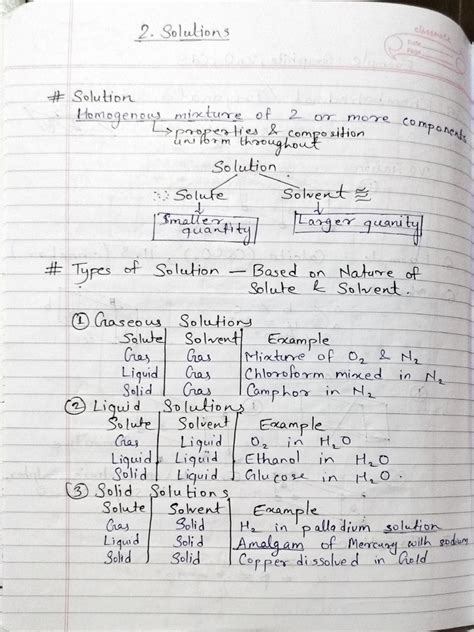 classmate
Date
Page
2. Solutions
# Solution
Homogenous mixture of 2 or more components
↳ properties & composition
uniform throughout
Solution
Solute Solvent
Smaller quantity Larger quanity
# Types of Solution — Based on Nature of
Solute & Solvent.
① Gaseous Solutions
Solute Solvent Example
Gas Gas Mixture of O₂ & N₂
Liquid Gas Chloroform mixed in N₂
Solid Gas Camphor in N₂
② Liquid Solutions
Solute Solvent Example
Gas Liquid O₂ in H₂O
Liquid Liquid Ethanol in H₂O
Solid Liquid Glucose in H₂O.
③ Solid Solutions
Solute Solvent Example
Gas Solid H₂ in palladium solution
Liquid Solid Amalgam of Mercury with sodium
Solid Solid Copper dissolved in Gold